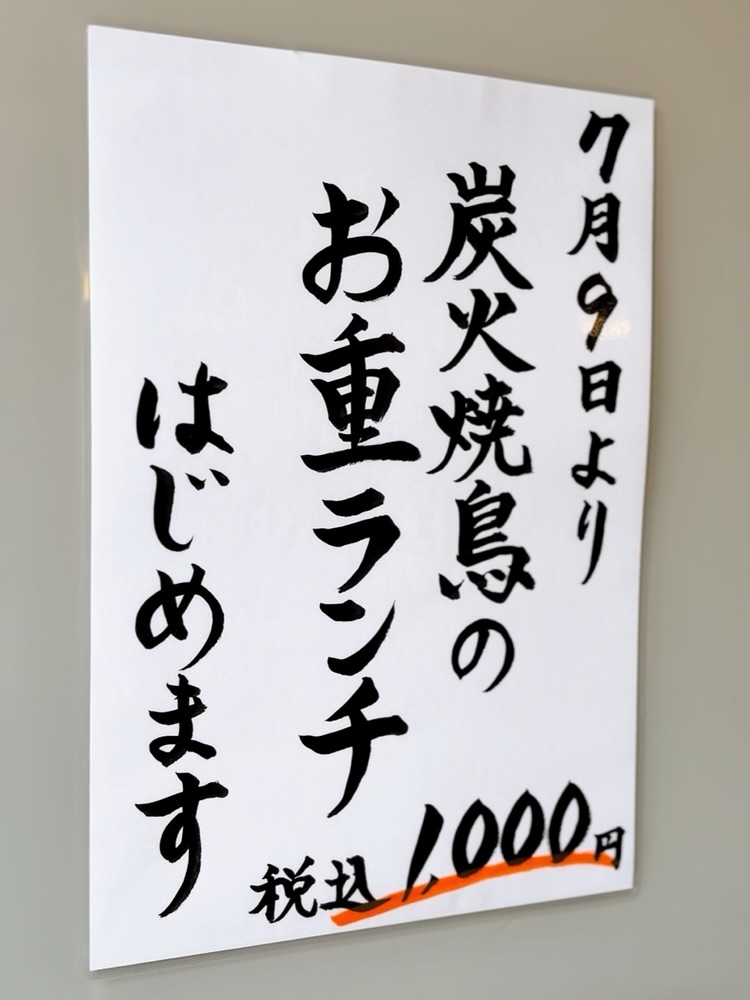 7月9日より
炭火焼鳥の
お重ランチ
はじめます
税込1,000円